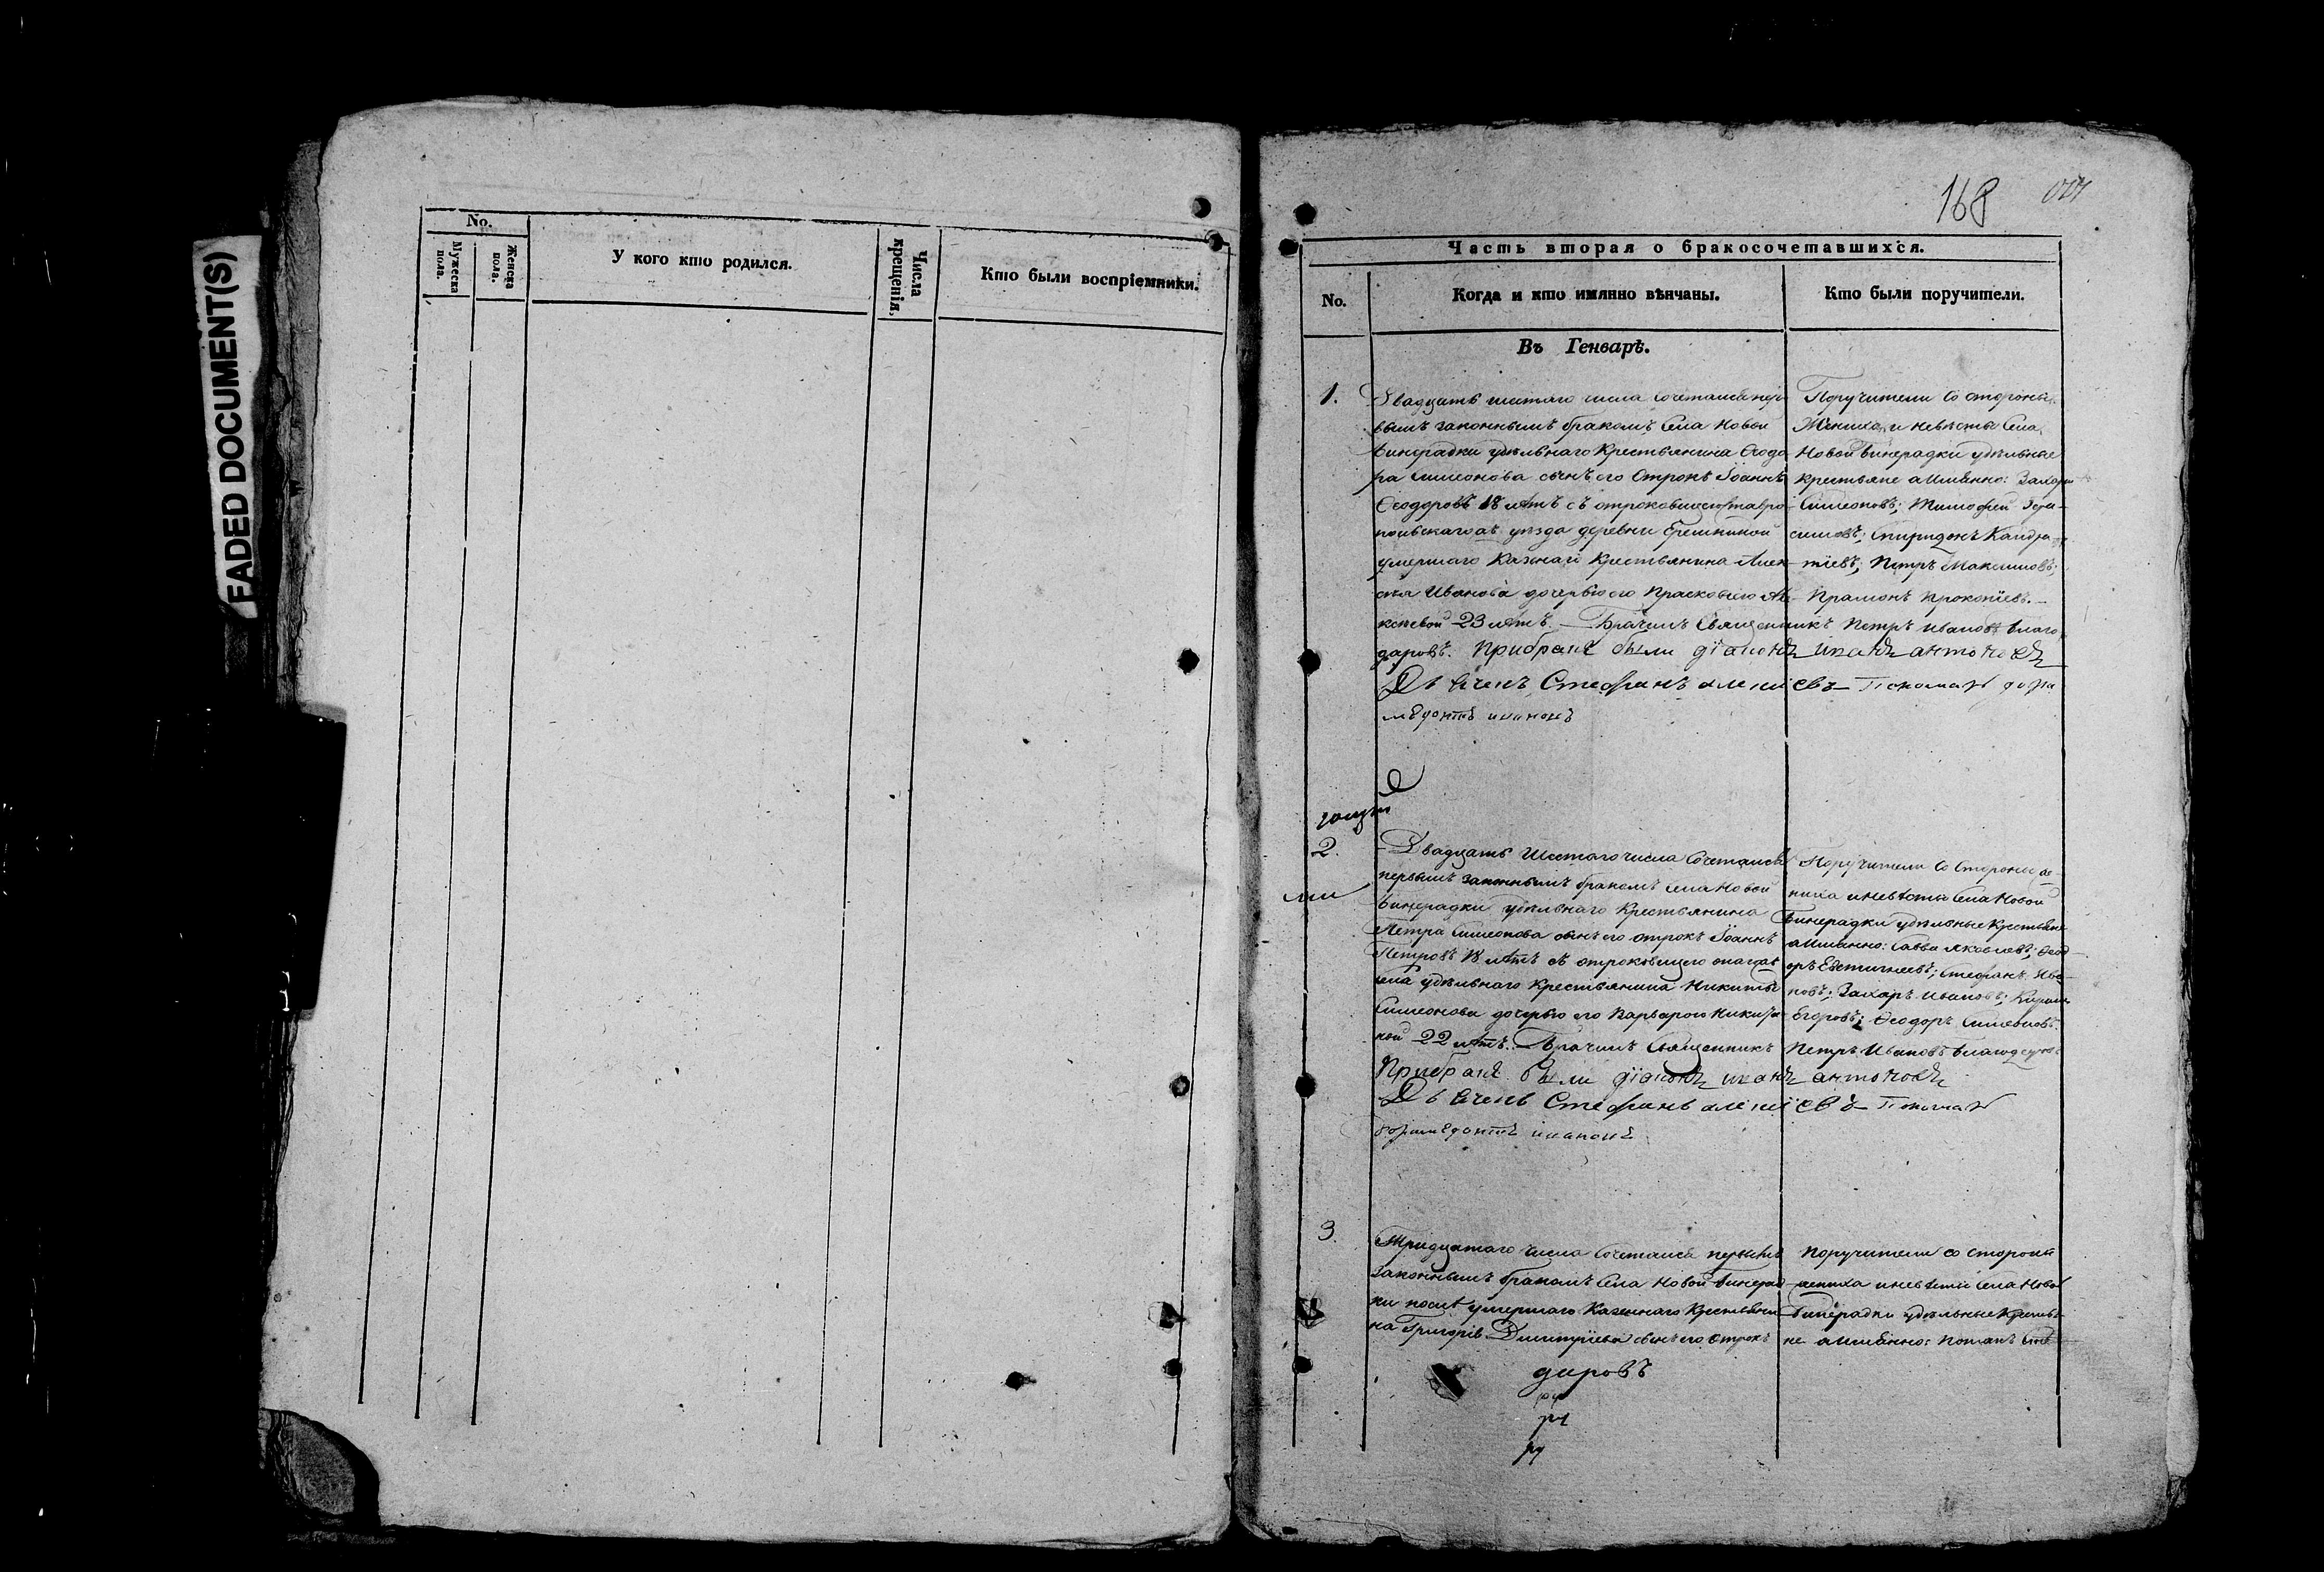 FADED DOCUMENT(S)
No.
Мужеска пола.
Женска пола.
У кого кто родился.
Числа крещенія.
Кто были воспріемники.
168
Часть вторая о бракосочетавшихся.
No.
Когда и кто имянно вѣнчаны.
Кто были поручители.
Въ Генварѣ.
1.
Двадцать шестаго числа сочетался пер
вымъ законнымъ бракомъ Села Новой
Бинерадки удѣльнаго Крестьянина Ѳеодо
ра Симеонова сынъ его Отрокъ Іоаннъ
Ѳеодоровъ 18 лѣтъ съ отроковицею Ставро
польскаго уѣзда деревни
умершаго Крестьянина Алек
сея Иванова дочерью его Прасковьею Але
ксѣевой 23 лѣтъ. Брачилъ Священникъ Петръ Ивановъ Благо
даровъ. При бракѣ были діаконъ иванъ антоновъ
Дьячекъ Стефанъ Пономарь
ивановъ
Поручители со стороны
Жениха и невѣсты Села
Новой Бинерадки удѣльные
крестьяне а имянно: Захаръ
Симеоновъ; Тимофей Гера
симовъ; Спиридонъ Кондра
тіевъ; Петръ Максимовъ;
Прокопіевъ.
2.
Двадцать Шестаго числа Сочетался
первымъ законнымъ бракомъ села Новой
Бинерадки удѣльнаго Крестьянина
Петра Симеонова сынъ его отрокъ Іоаннъ
Петровъ 18 лѣтъ съ отроковицею онагожъ
села удѣльнаго Крестьянина Никиты
Симеонова дочерью его Варварою Никити
ной 22 лѣтъ. Брачилъ Священникъ Петръ Ивановъ Благодаровъ
При бракѣ были діаконъ иванъ антоновъ
Дьячекъ Стефанъ Пономарь
ивановъ
Поручители со стороны же
ниха и невѣсты Села Новой
Бинерадки удѣльные Крестьяне
а имянно: Савва Яковлевъ; Ѳеод
оръ; Стефанъ Ива
новъ; Захаръ Ивановъ;
Егоровъ; Ѳеодоръ Симеоновъ.
3.
Тридцатаго числа Сочетался первымъ
Законнымъ бракомъ Села Новой Бинерад
ки послѣ умершаго Казеннаго Крестьяни
на Григорія Димитріева сынъ его отрокъ
поручители со стороны
жениха и невѣсты Села Новой
Бинерадки удѣльные Крестья
не а имянно: Потапъ
даровъ